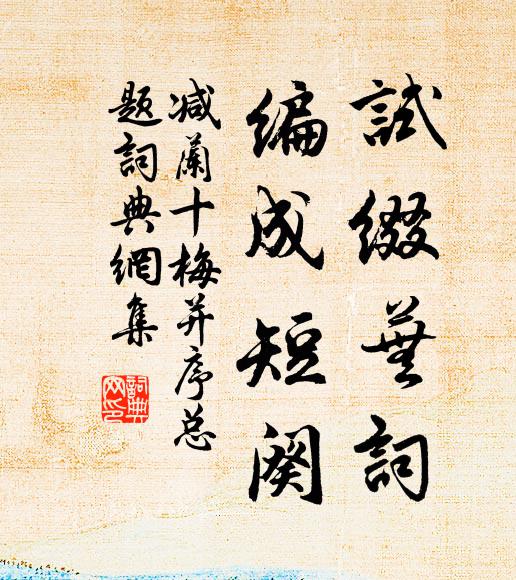 試綴蕪詞
編成短闋
减蘭十梅并序总
题詞典網集
詞典
网印